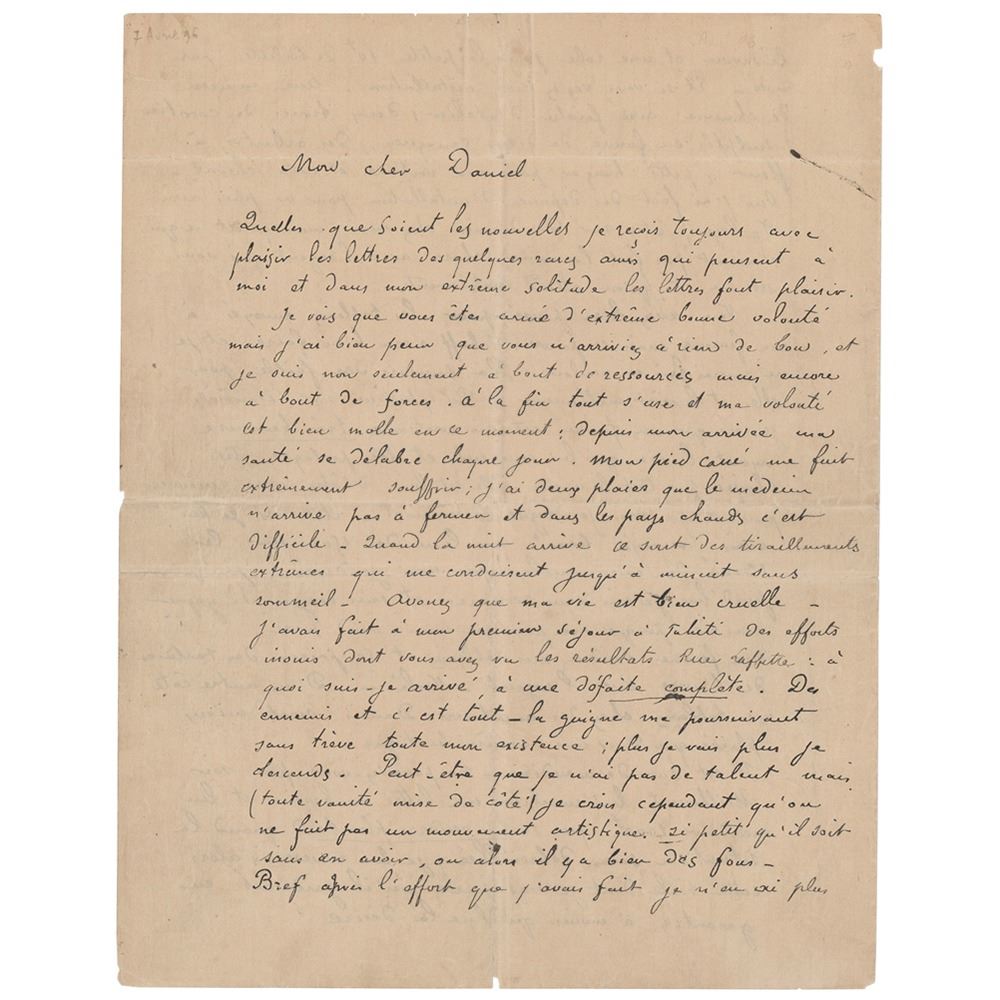 7 Avril 96
Mon cher Daniel
Quelles que soient les nouvelles je reçois toujours avec
plaisir les lettres des quelques rares amis qui pensent à
moi et dans mon extrême solitude les lettres font plaisir.
Je vois que vous êtes armé d'extrême bonne volonté
mais j'ai bien peur que vous n'arriviez à rien de bon, et
je suis non seulement à bout de ressources mais encore
à bout de forces. à la fin tout s'use et ma volonté
est bien molle en ce moment ; depuis mon arrivée ma
santé se délabre chaque jour. Mon pied cassé me fait
extrêmement souffrir ; j'ai deux plaies que le médecin
n'arrive pas à fermer et dans les pays chauds c'est
difficile - Quand la nuit arrive ce sont des tiraillements
extrêmes qui me conduisent jusqu'à minuit sans
sommeil - Avouez que ma vie est bien cruelle -
J'avais fait à mon premier séjour à Tahiti des efforts
inouis dont vous avez vu les résultats Rue Laffitte : à
quoi suis-je arrivé, à une défaite complète. Des
ennemis et c'est tout - la guigne me poursuivant
sans trève toute mon existence ; plus je vais plus je
descends. Peut-être que je n'ai pas de talent mais
(toute vanité mise de côté) je crois cependant qu'on
ne fait pas un mouvement artistique. si petit qu'il soit
sans en avoir, ou alors il y a bien des fous -
Bref après l'effort que j'avais fait je n'en ai plus